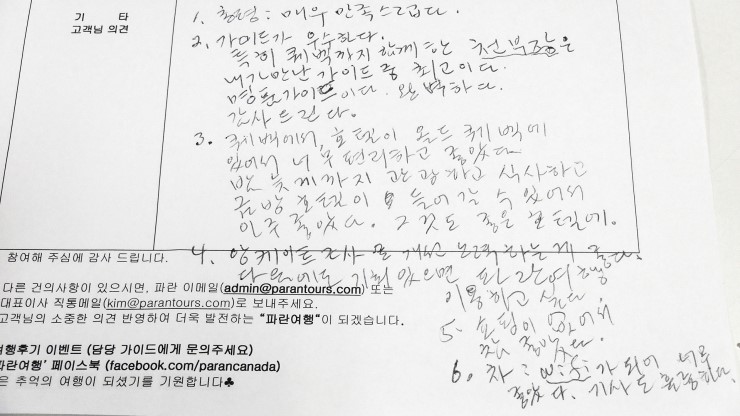 기 타
고객님 의견
1. 총평 : 매우 만족스럽다.
2. 가이드가 우수하다.
특히 퀘벡까지 함께 한 천부장은
내가 만난 가이드 중 최고이다.
명품가이드이다. 완벽하다.
감사드린다.
3. 퀘벡에서, 호텔이 올드 퀘벡에
있어서 너무 편리하고 좋았다.
밤 늦게까지 관광하고 식사하고
금방 호텔이 들어갈 수 있어서
아주 좋았다. 그것도 좋은 호텔에.
4. 앙케이트 조사로 개선 노력하는 게 좋다.
다음에도 기회 있으면 파란여행
이용하고 싶다.
5. 쇼핑이 없어서
참 좋았다.
6. 차 : wifi가 되어 너무
좋았다. 기사도 훌륭하다.
참여해 주심에 감사 드립니다.
다른 건의사항이 있으시면, 파란 이메일(admin@parantours.com) 또는
대표이사 직통메일(kim@parantours.com)로 보내주세요.
고객님의 소중한 의견 반영하여 더욱 발전하는 "파란여행"이 되겠습니다.
여행후기 이벤트 (담당 가이드에게 문의주세요)
파란여행' 페이스북 (facebook.com/parancanada)
은 추억의 여행이 되셨기를 기원합니다♣